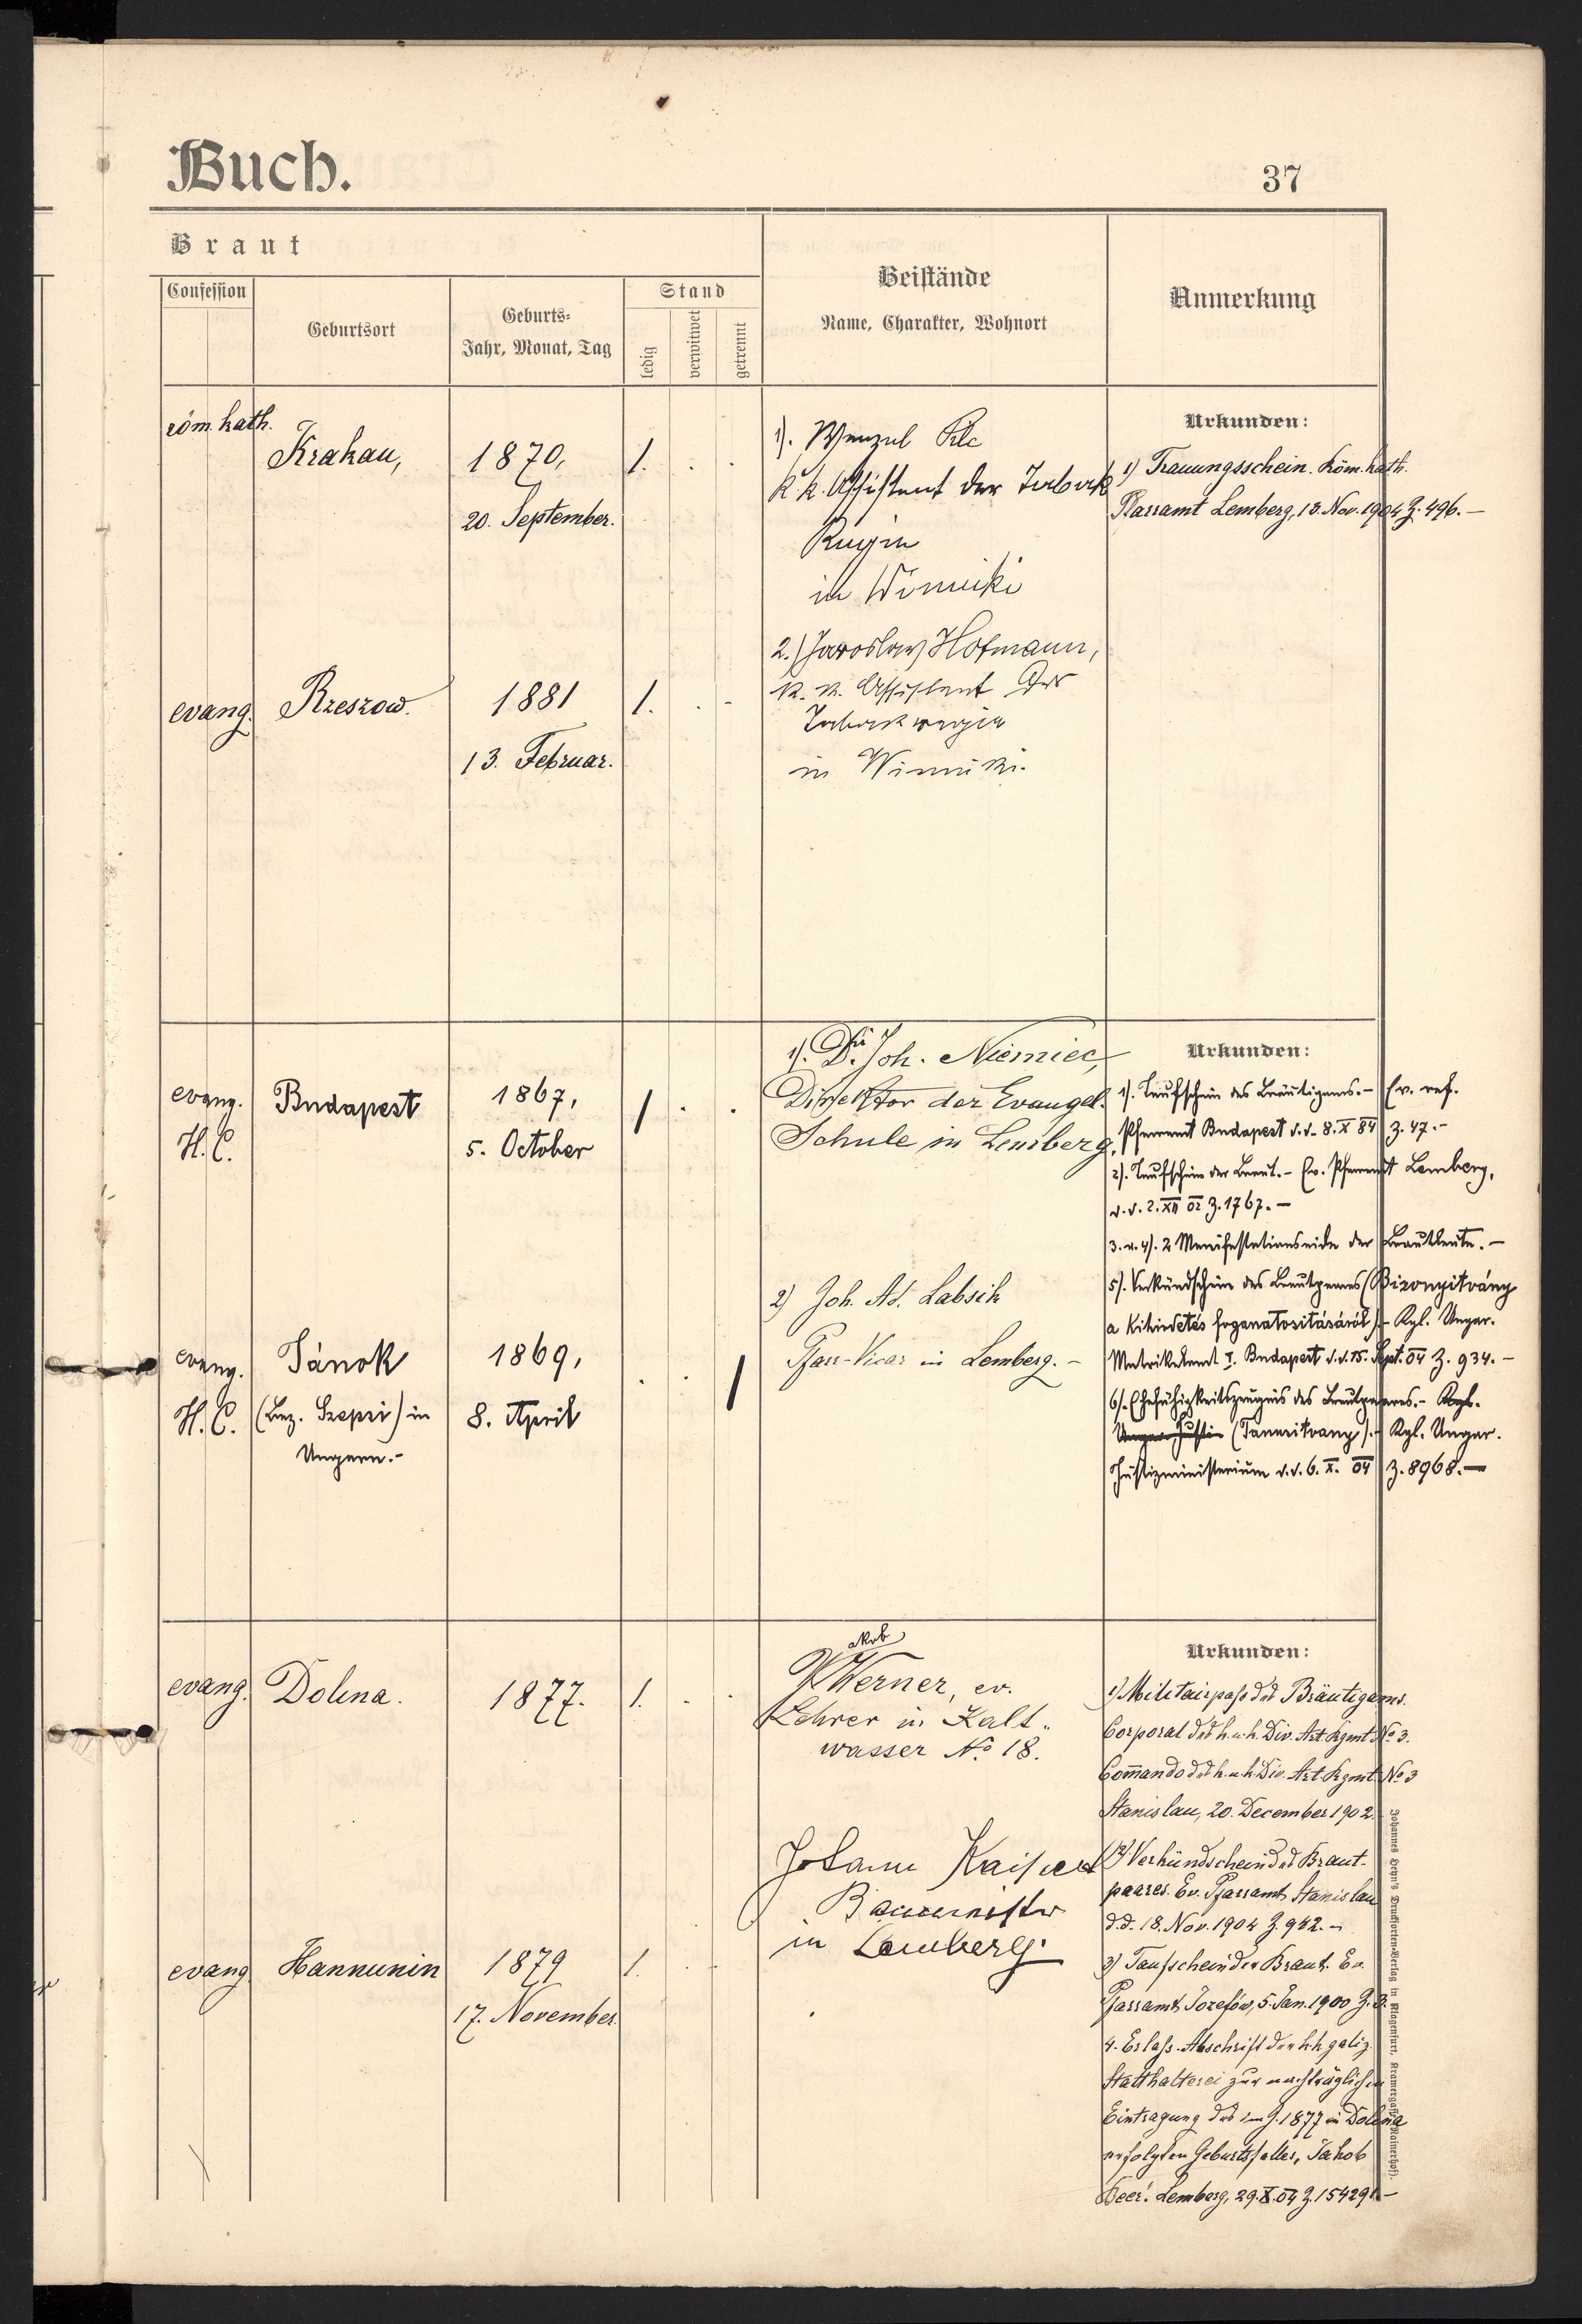 Buch.
37
Braut
Confession
Geburtsort
Geburts-
Jahr, Monat, Tag
Stand
ledig
verwitwet
getrennt
Beistände
Name, Charakter, Wohnort
Anmerkung
röm. kath.
Krakau,
1870,
20. September.
1.
1). Wenzel
k. k. Assistent der Tabak
Regie
in Winniki
Urkunden:
1) Trauungsschein. Röm. kath.
Pfarramt Lemberg, 13. Nov. 1904 Z. 496. —
evang.
Rzeszow.
1881
13. Februar.
1.
2.) Jaroslaw Hofmann,
k. k. Assistent der
Tabakregie
in Winniki.
evang.
H. C.
Budapest
1867,
5. October
1
1). Dr. Joh. Niemiec,
Direktor der Evangel.
Schule in Lemberg.
Urkunden:
1). Taufschein des Bräutigams. – Ev. ref.
Pfarramt Budapest d. d. 8. X 84 Z. 47. –
2). Taufschein der Braut. – Ev. Pfarramt Lemberg,
d. d. 2. XII 02 Z. 1767. —
3. u. 4). 2 Manifestationseide der Brautleute. –
5). Verkündschein des Brautpaares (Bizonyitvány
a kihirdetés foganatositásáról). – Kgl. Ungar.
Matrikelamt I. Budapest d. d. 15. Sept. 04 Z. 934. –
6). Ehefähigkeitszeugnis des Brautpaares. – Kgl.
Ungar. Justiz (Tanusitvany). – Kgl. Ungar.
Justizministerium d. d. 6. X. 04 Z. 8968. —
evang.
H. C.
Jánok
(Bez. Szepsi) in
Ungarn. –
1869,
8. April
1
2) Joh. Ad. Labsik
Pfarr-Vicar in Lemberg. –
evang.
Dolina.
1877.
1.
akob
J Werner, ev.
Lehrer in Kalt-
wasser No. 18.
Urkunden:
1) Militairpaß des Bräutigams.
Corporal des k. u. k. Div. Art. Rgmt. No 3.
Commando des k. u. k. Div. Art. Rgmt. No 3
Stanislau, 20. December 1902.
2) Verkündschein des Braut-
paares. Ev. Pfarramt Stanislau
d. d. 18. Nov. 1904 Z. 942. –
3) Taufschein der Braut. Ev.
Pfarramt Jozefów, 5. Jan. 1900 Z. 3.
4. Erlaß-Abschrift der kk galiz.
Statthalterei zur nachträglichen
Eintragung des im J. 1877 in Dolina
erfolgten Geburtsfalles, Jakob
Beer. Lemberg, 29. X. 04 Z. 154291. –
evang.
Hannunin
1879
17. November.
1.
Johann
Baumeister
in Lemberg.
Johannes Heyn's Drucksorten-Verlag in Klagenfurt, Kramergasse (Rainerhof).